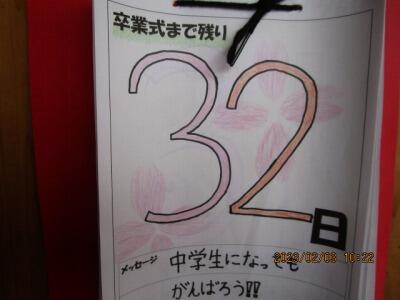 卒業式まで残り
32
日
メッセージ 中学生になっても
がんばろう!!
2023/02/03 10:22